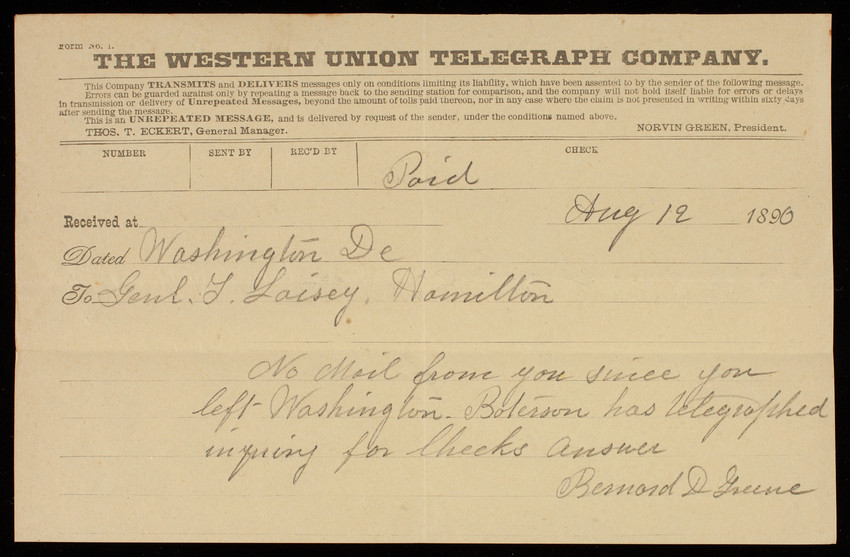 Form No. 1.
THE WESTERN UNION TELEGRAPH COMPANY.
This Company TRANSMITS and DELIVERS messages only on conditions limiting its liability, which have been assented to by the sender of the following message.
Errors can be guarded against only by repeating a message back to the sending station for comparison, and the company will not hold itself liable for errors or delays
in transmission or delivery of Unrepeated Messages, beyond the amount of tolls paid thereon, nor in any case where the claim is not presented in writing within sixty days
after sending the message.
This is an UNREPEATED MESSAGE, and is delivered by request of the sender, under the conditions named above.
THOS. T. ECKERT, General Manager. NORVIN GREEN, President.
NUMBER SENT BY REC'D BY CHECK
Paid
Received at Aug 12 1890
Dated Washington Dc
To Genl. T. L. Casey, Hamilton
No Mail from you since you
left Washington. Boterson has telegraphed
inquiring for Checks answer
Bernard D Greene